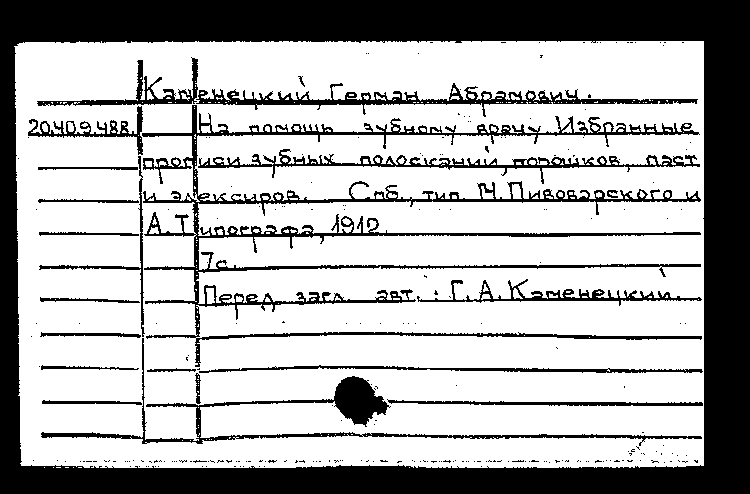 Каменецкий, Герман Абрамович.
20.40.9.488. На помощь зубному врачу. Избранные
прописи зубных полосканий, порошков, паст
и элексиров. Спб., тип. М. Пивоварского и
А. Типографа, 1912.
7с.
Перед загл. авт.: Г. А. Каменецкий.